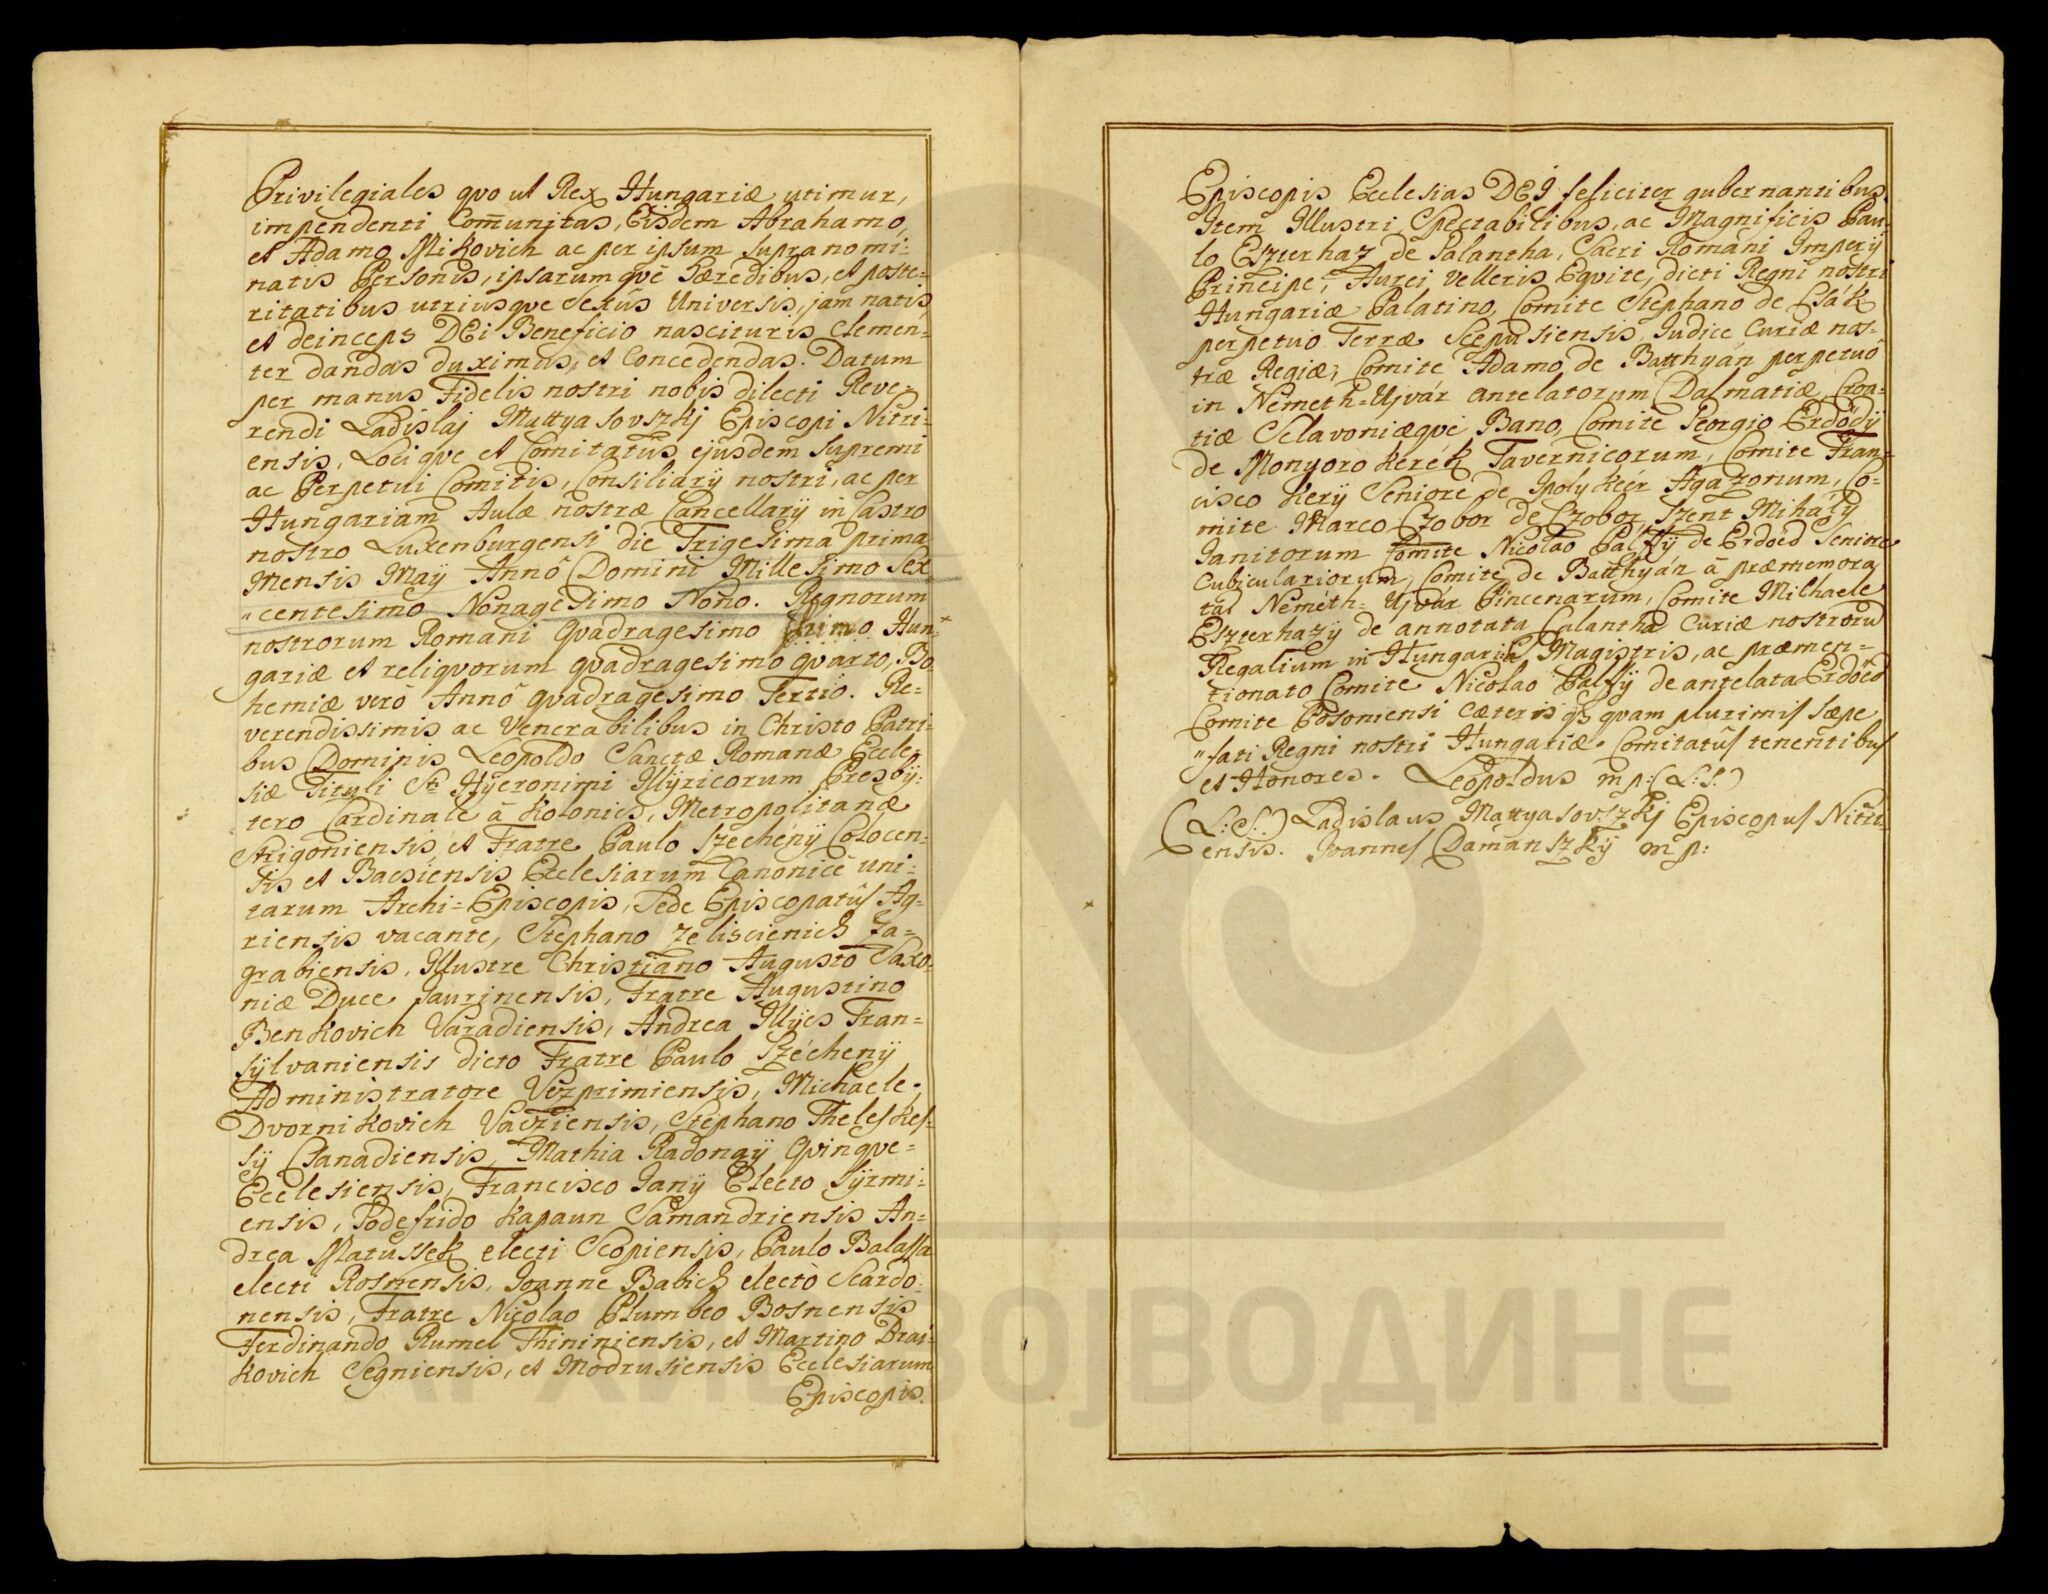 Privilegiales qvo ut Rex Hungariæ utimur,
impendenti Com̄unitas, Eisdem Abrahamo,
et Adamo Mikovich ac per ipsum supranomi-
natis Personis, ipsarumqvè Hæredibus, et poste-
ritatibus utriusqve Sexûs Universis, jam natis,
et deinceps DEi Beneficio nascituris Clemen-
ter dandas duximus, et Concedendas. Datum
per manus Fidelis nostri nobis dilecti Reve-
rendi Ladislaj Mattyasovszkj Episcopi Nitri-
ensis, Lociqve et Comitatûs ejusdem supremi
ac Perpetui Comitis, Consiliarÿ nostri, ac per
Hungariam Aulæ nostræ Cancellarÿ in Castro
nostro Luxenburgensi die Trigesima prima
Mensis Maÿ Annô Domini Millesimo Sex
"centesimo Nonagesimo Nono. Regnorum
nostrorum Romani Qvadragesimo primo Hun-
gariæ et reliqvorum qvadragesimo qvarto, Bo
hemiæ verò Annô qvadragesimo Tertio. Re-
verendissimis ac Venerabilibus in Christo Patri-
bus Dominis Leopoldo Sanctæ Romanæ Eccle-
siæ Tituli Sti Hÿeronimi Illÿricorum Presbÿ-
tero Cardinale â Kolonics, Metropolitanæ
Strigoniensis, et Fratre Paulo Szechenÿ Colocen-
sis et Bacsiensis Ecclesiarum Canonicè uni-
tarum Archi-Episcopis, Sede Episcopatûs Ag-
riensis vacante, Stephano Zeliscienich Za-
grabiensis, Illustre Christiano Augusto Saxo-
niæ Duce Jaurinensis, Fratre Augustino
Benkovich Varadiensis, Andrea Illÿes Tran-
sÿlvaniensis dicto Fratre Paulo Szécheny
Administratore Veszprimiensis, Michaele
Dvornikovich Vacziensis, Stephano Theleskes-
sÿ Csanadiensis, Mathia Radonaÿ Qvinqve-
Ecclesiensis, Francisco Janÿ Electo Sÿrmi-
ensis, Godefrido Kapaun Samandriensis An-
drea Matussek electi Scopiensis, Paulo Balassa
electi Rosnensis, Joanne Babich electo Scardo-
nensis, Fratre Nicolao Plumbeo Bosnensis
Ferdinando Rumel Thininiensis, et Martino Bras-
kovich Segniensis, et Modrusiensis Ecclesiarum
Episcopis.
Episcopis Ecclesias DEJ feliciter gubernantibus.
Item Illustri, Spectabilibus, ac Magnificis Pau-
lo Eszterhaz de Galantha, Sacri Romani Imperÿ
Principe, Aurei Velleris Eqvite, dicti Regni nostri
Hungariæ Palatino, Comite Stephano de Csák
perpetuo Terræ Scepusiensis Judice Curiæ nos-
træ Regiæ, Comite Adamo de Batthyán perpetuò
in Nemeth-Ujvár antelatorum Dalmatiæ, Croa-
tiæ Sclavoniæqve Bano, Comite Georgio Erdődÿ
de Monyorokerek Tavernicorum, Comite Fran-
cisco Kerÿ Seniore de Ipolykeér Agazonum, Co-
mite Marco Czobor de Czobor Szent Mihály
Janitorum Comite Nicolao Pálffÿ de Erdoed Seniore
Cubiculariorum, Comite de Batthyán â præmemora
tal Neméth-Ujvár Pincenarum, Comite Michaele
Eszterhazÿ de annotata Galantha Curiæ nostroru
Regalium in Hungaria Magistris, ac præmen-
tionato Comite Nicolao Palffÿ de antelata Erdőed
Comite Posoniensi Cæterisqz qvam plurimis sæpe
"fati Regni nostri Hungariæ Comitatûs tenentibus
et Honores. Leopoldus mp: (L:S:)
(L:S:) Ladislaus Mattyasovszkj Episcopus Nitri-
ensis. Joannes Damanszkÿ mp:
ВОЈВОДИНЕ